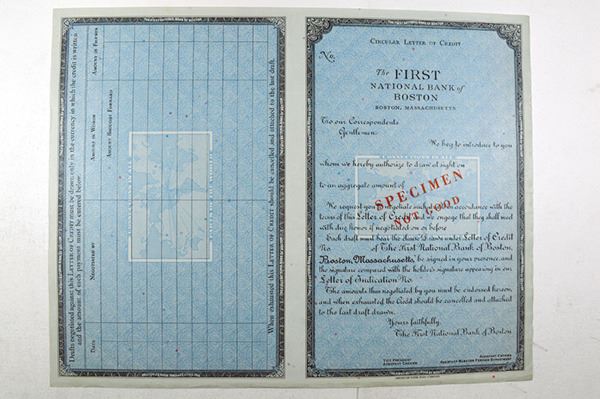 Drafts negotiated against this Letter of Credit must be drawn only in the currency in which the credit is written
and the amount of each payment must be entered below.
Date
Negotiated by
Amount in Words
Amount Brought Forward
Amount in Figures
When exhausted this Letter of Credit should be cancelled and attached to the last draft.
Circular Letter of Credit
No.
The FIRST
NATIONAL BANK of
BOSTON
BOSTON, MASSACHUSETTS
To our Correspondents
Gentlemen:
We beg to introduce to you
whom we hereby authorize to draw at sight on
to an aggregate amount of
SPECIMEN
NOT GOOD
We request you to negotiate such drafts in accordance with the
terms of this Letter of Credit and we engage that they shall meet
with due honor if negotiated on or before
Each draft must bear the clause Drawn under Letter of Credit
No. of The First National Bank of Boston,
Boston, Massachusetts, be signed in your presence, and
the signature compared with the holder's signature appearing in our
Letter of Indication No.
The amounts thus negotiated by you must be endorsed hereon,
and when exhausted the Credit should be cancelled and attached
to the last draft drawn.
Yours faithfully,
The First National Bank of Boston
Vice President
Assistant Cashier
Assistant Cashier
Assistant Manager Foreign Department